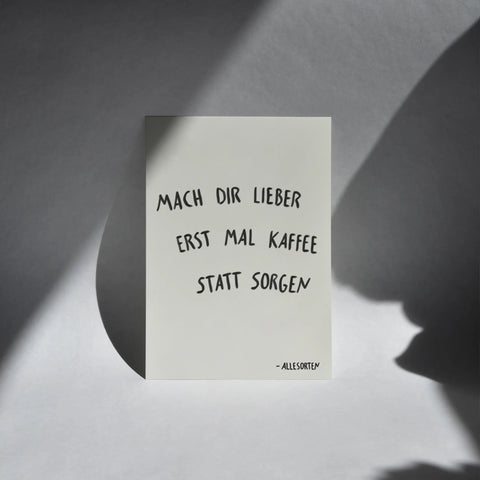 MACH DIR LIEBER
ERST MAL KAFFEE
STATT SORGEN
- ALLESORTEN